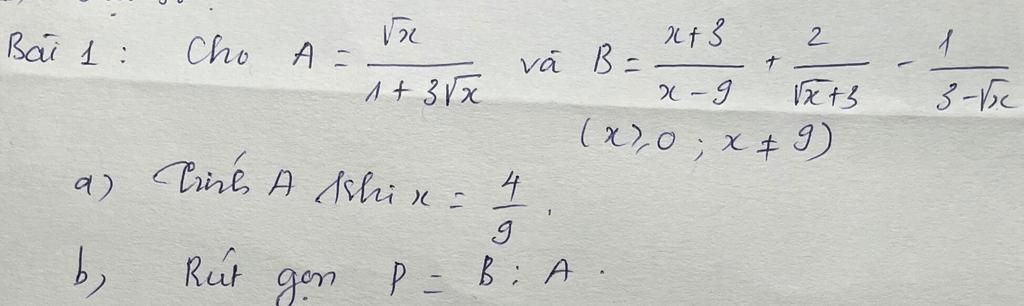 Bài 1 : Cho A = √x / (1 + 3√x) và B = (x+3)/(x-9) + 2/(√x+3) - 1/(3-√x)
(x ≥ 0 ; x ≠ 9)
a) Tính A khi x = 4/9 .
b, Rút gọn P = B : A .